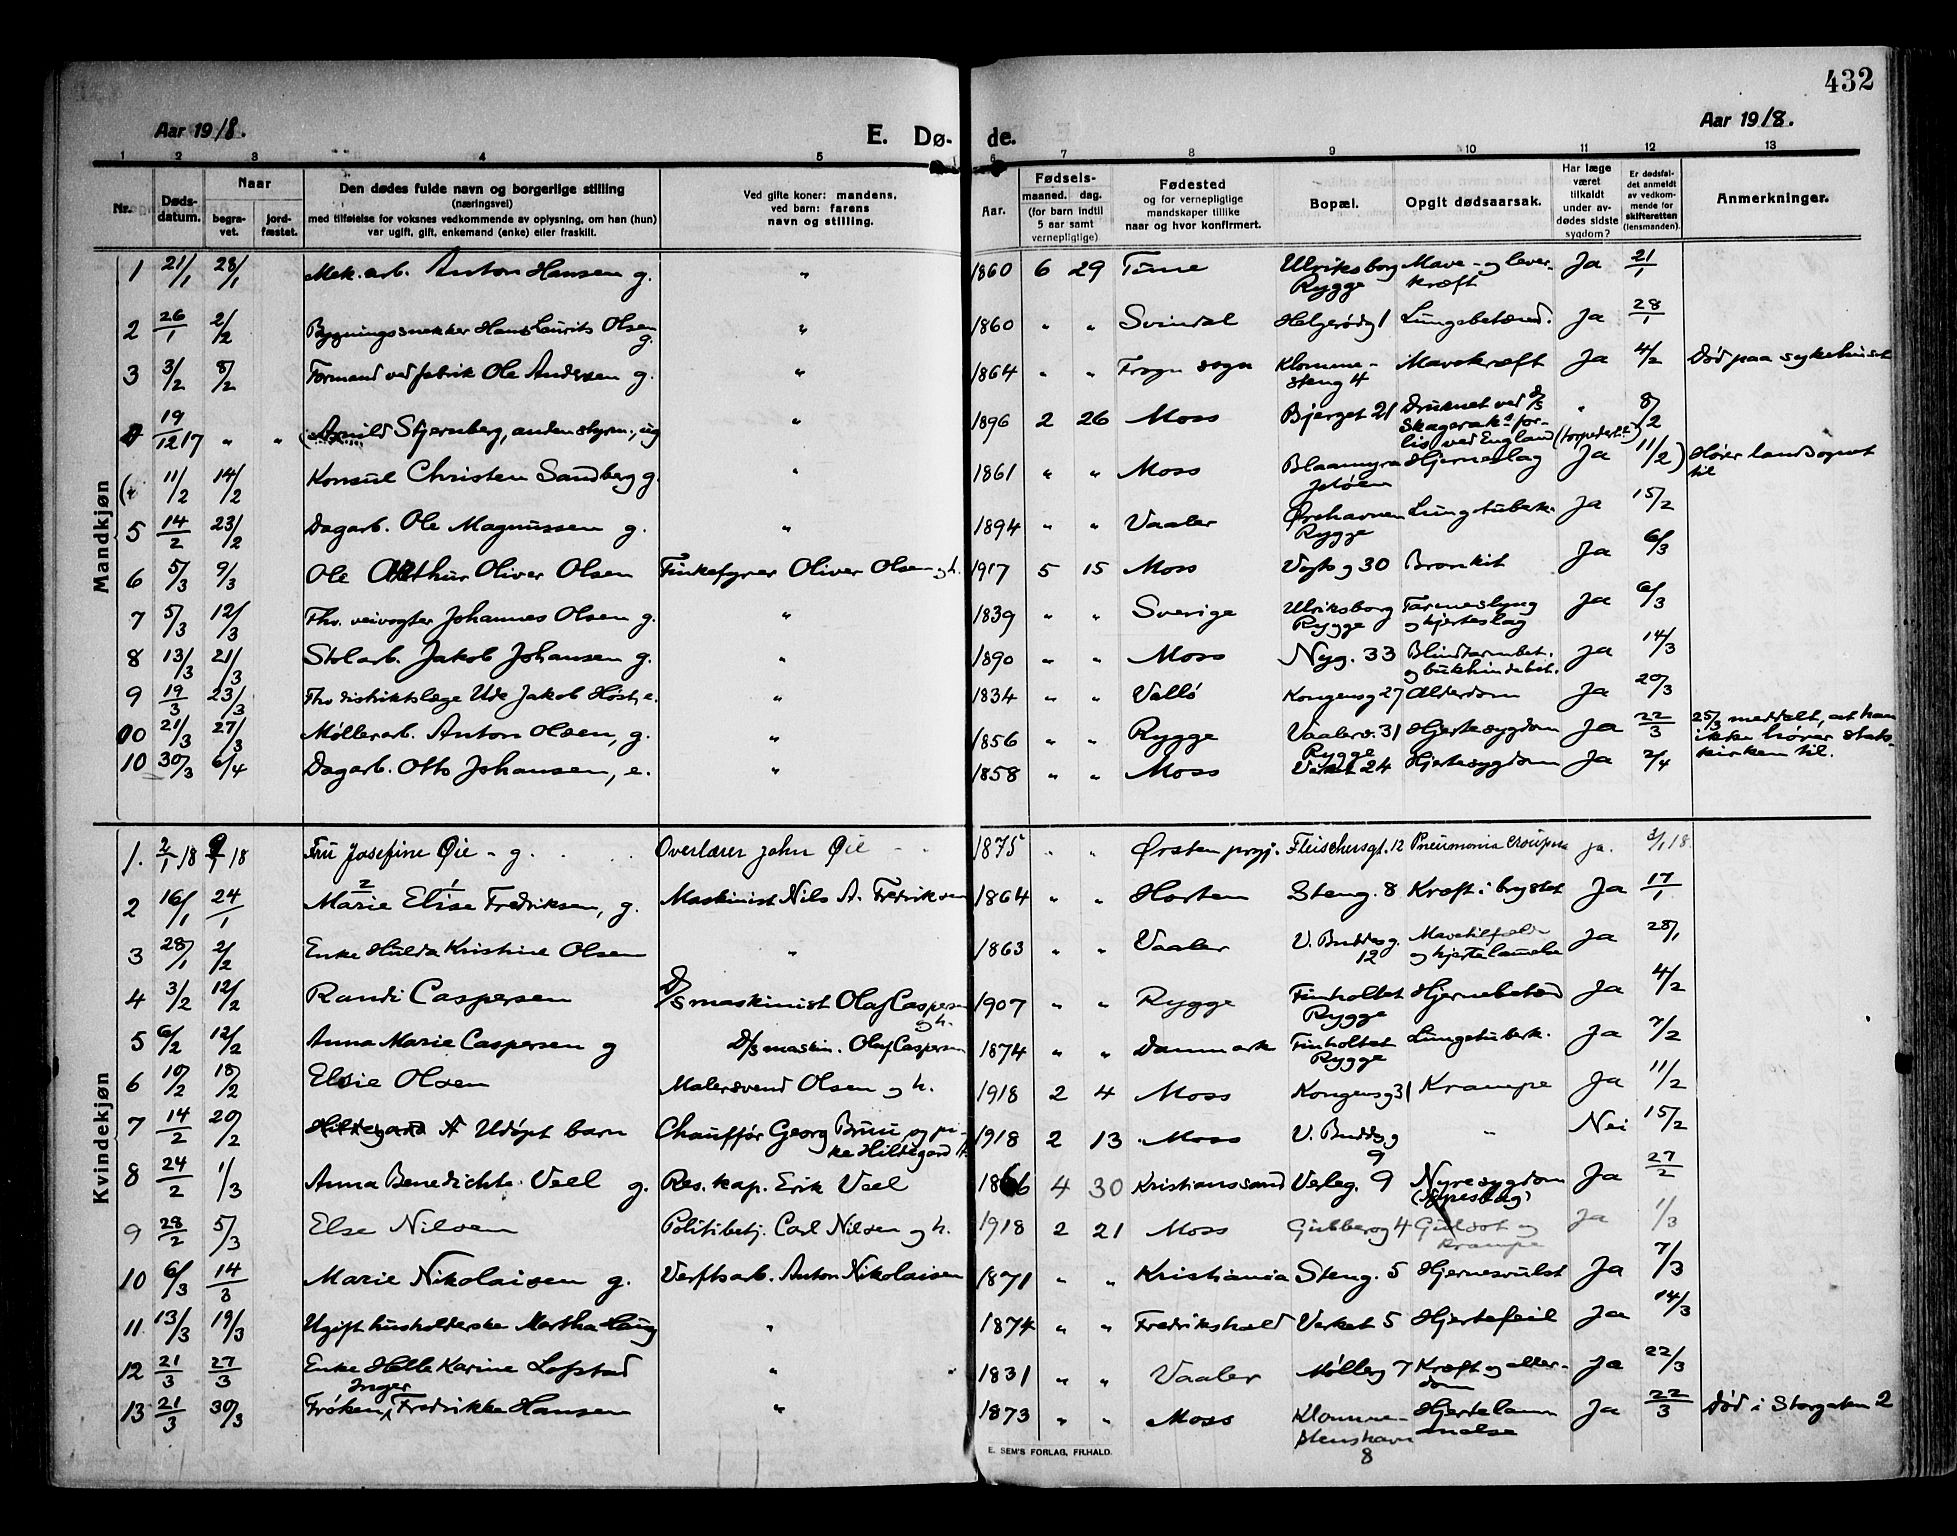 432
Aar 1918. E. Dø- de. Aar 1918.
1 2 3 4 5 6 7 8 9 10 11 12 13
Nr. Døds-datum. Naar begra-vet. jord-fæstet. Den dødes fulde navn og borgerlige stilling (næringsvei) med tilføielse for voksnes vedkommende av oplysning, om han (hun) var ugift, gift, enkemand (enke) eller fraskilt. Ved gifte koner: mandens, ved barn: farens navn og stilling. Aar. Fødsels- maaned. dag. (for barn indtil 5 aar samt vernepligtige) Fødested og for vernepligtige mandskaper tillike naar og hvor konfirmert. Bopæl. Opgit dødsaarsak. Har læge været tilkaldt under av-dødes sidste sygdom? Er dødsfal-det anmeldt av vedkom-mende for skifteretten (lensmanden). Anmerkninger.
Mandkjøn
1 21/1 28/1 Mek. arb. Anton Hansen g. " 1860 6 29 Tune Ulriksborg Rygge Mave- og lever-kræft Ja 21/1
2 26/1 2/2 Bygningssnekker Hans Laurits Olsen g. " 1860 " " Svindal Helgerødg 1 Lungebetænd. Ja 28/1
3 3/2 8/2 Formand ved fabrik Ole Andersen g. " 1864 " " Frogn sogn Klomme-steng 4 Mavekræft Ja 4/2 Død paa sykehuset
4 19/12 17 " " Arnild Stjernberg, anden styrm., ug " 1896 2 26 Moss Bjerget 21 Druknet ved D/S Skageraks for-lis ved England (torpedert) " 8/2
( " 11/2 14/2 Konsul Christen Sandberg g. " 1861 " " Moss Blaamyra Jeløen Hjerneslag Ja 11/2) Hører landsognet til
5 14/2 23/2 Dagarb. Ole Magnussen g. " 1894 " " Vaaler Ørehavnen Rygge Lungetuberk. Ja 15/2
6 5/3 9/3 Ole Arthur Oliver Olsen Finkefyrer Oliver Olsen og h. 1917 5 15 Moss Vogts g 30 Bronkit Ja 6/3
7 5/3 12/3 Fhv. veivogter Johannes Olsen g. " 1839 " " Sverige Ulriksborg Rygge Tarmeslyng og hjerteslag Ja 6/3
8 13/3 21/3 Stolarb. Jakob Johansen g. " 1890 " " Moss Nyg. 33 Blindtarmbet. og bukhindebet. Ja 14/3
9 19/3 23/3 Fhv distriktslæge Ude Jakob Høst, e. " 1834 " " Vallø Kongensg 27 Alderdom Ja 20/3
00 21/3 27/3 Møllerarb. Anton Olsen, g. " 1856 " " Rygge Vaalerv. 31 Rygge Hjertesygdom Ja 22/3 25/3 meddelt, at han ikke hører stats-kirken til.
10 30/3 6/4 Dagarb. Otto Johansen, e. " 1858 " " Moss Verket 24 Hjertesygdom Ja 2/4
Kvindekjøn
1. 2/1 18 9/1 18 Fru Josefine Øie - g. Overlærer John Øie 1875 " " Ørsten prgj. Fleischersgt. 12 Pneumonia crouposa ja. 3/1 18
2 16/1 24/1 Marie 2 Elise 1 Fredriksen, g. Maskinist Nils A. Fredriksen 1864 " " Horten Steng. 8 Kræft i brystet Ja 17/1
3 28/1 2/2 Enke Hulda Kristine Olsen " 1863 " " Vaaler V. Buddesg. 12 og hjertelammelse Ja 28/1
4 3/2 12/2 Randi Caspersen D/S maskinist Olaf Caspersen og h. 1907 " " Rygge Finholtet Rygge Hjernebetæd Ja 4/2
5 6/2 12/2 Anna Marie Caspersen g D/S maskin. Olaf Caspersen 1874 " " Danmark Finholtet Rygge Lungetuberk. Ja 7/2
6 10/2 18/2 Elsie Olsen Malersvend Olsen og h. 1918 2 4 Moss Kongensg 31 Krampe Ja 11/2
7 14/2 20/2 Hildegard A Udøpt barn Chauffør Georg Bruu og pi-ke Hildegard 1918 2 13 Moss V. Buddsg 9 " Nei 15/2
8 24/2 1/3 Anna Benedichte Veel g. Res. kap. Erik Veel 1866 4 30 Kristianssand Verleg. 9 Nyresygdom Ja 27/2
9 28/2 5/3 Else Nilsen Politibetj. Carl Nilsen og h. 1918 2 21 Moss Gubberog 4 Gulsot og krampe Ja 1/3
10 6/3 14/3 Marie Nikolaisen g. Verftsarb. Anton Nikolaisen 1871 " " Kristiania Steng. 5 Hjernesvulst Ja 7/3
11 13/3 19/3 Ugift husholderske Martha Haug " 1874 " " Fredrikshald Verket 5 Hjertefeil Ja 14/3
12 21/3 27/3 Enke Helle Karine Lofstad " 1831 " " Vaaler Mølleg 7 Kræft og alder-dom Ja 22/3
13 21/3 30/3 Frøken Inger Fredrikke Hansen " 1873 " " Moss Klomme-stenshavn 8 Hjertelam-melse Ja 22/3 Død i Storgaten 2
E. SEM'S FORLAG, FR.HALD.